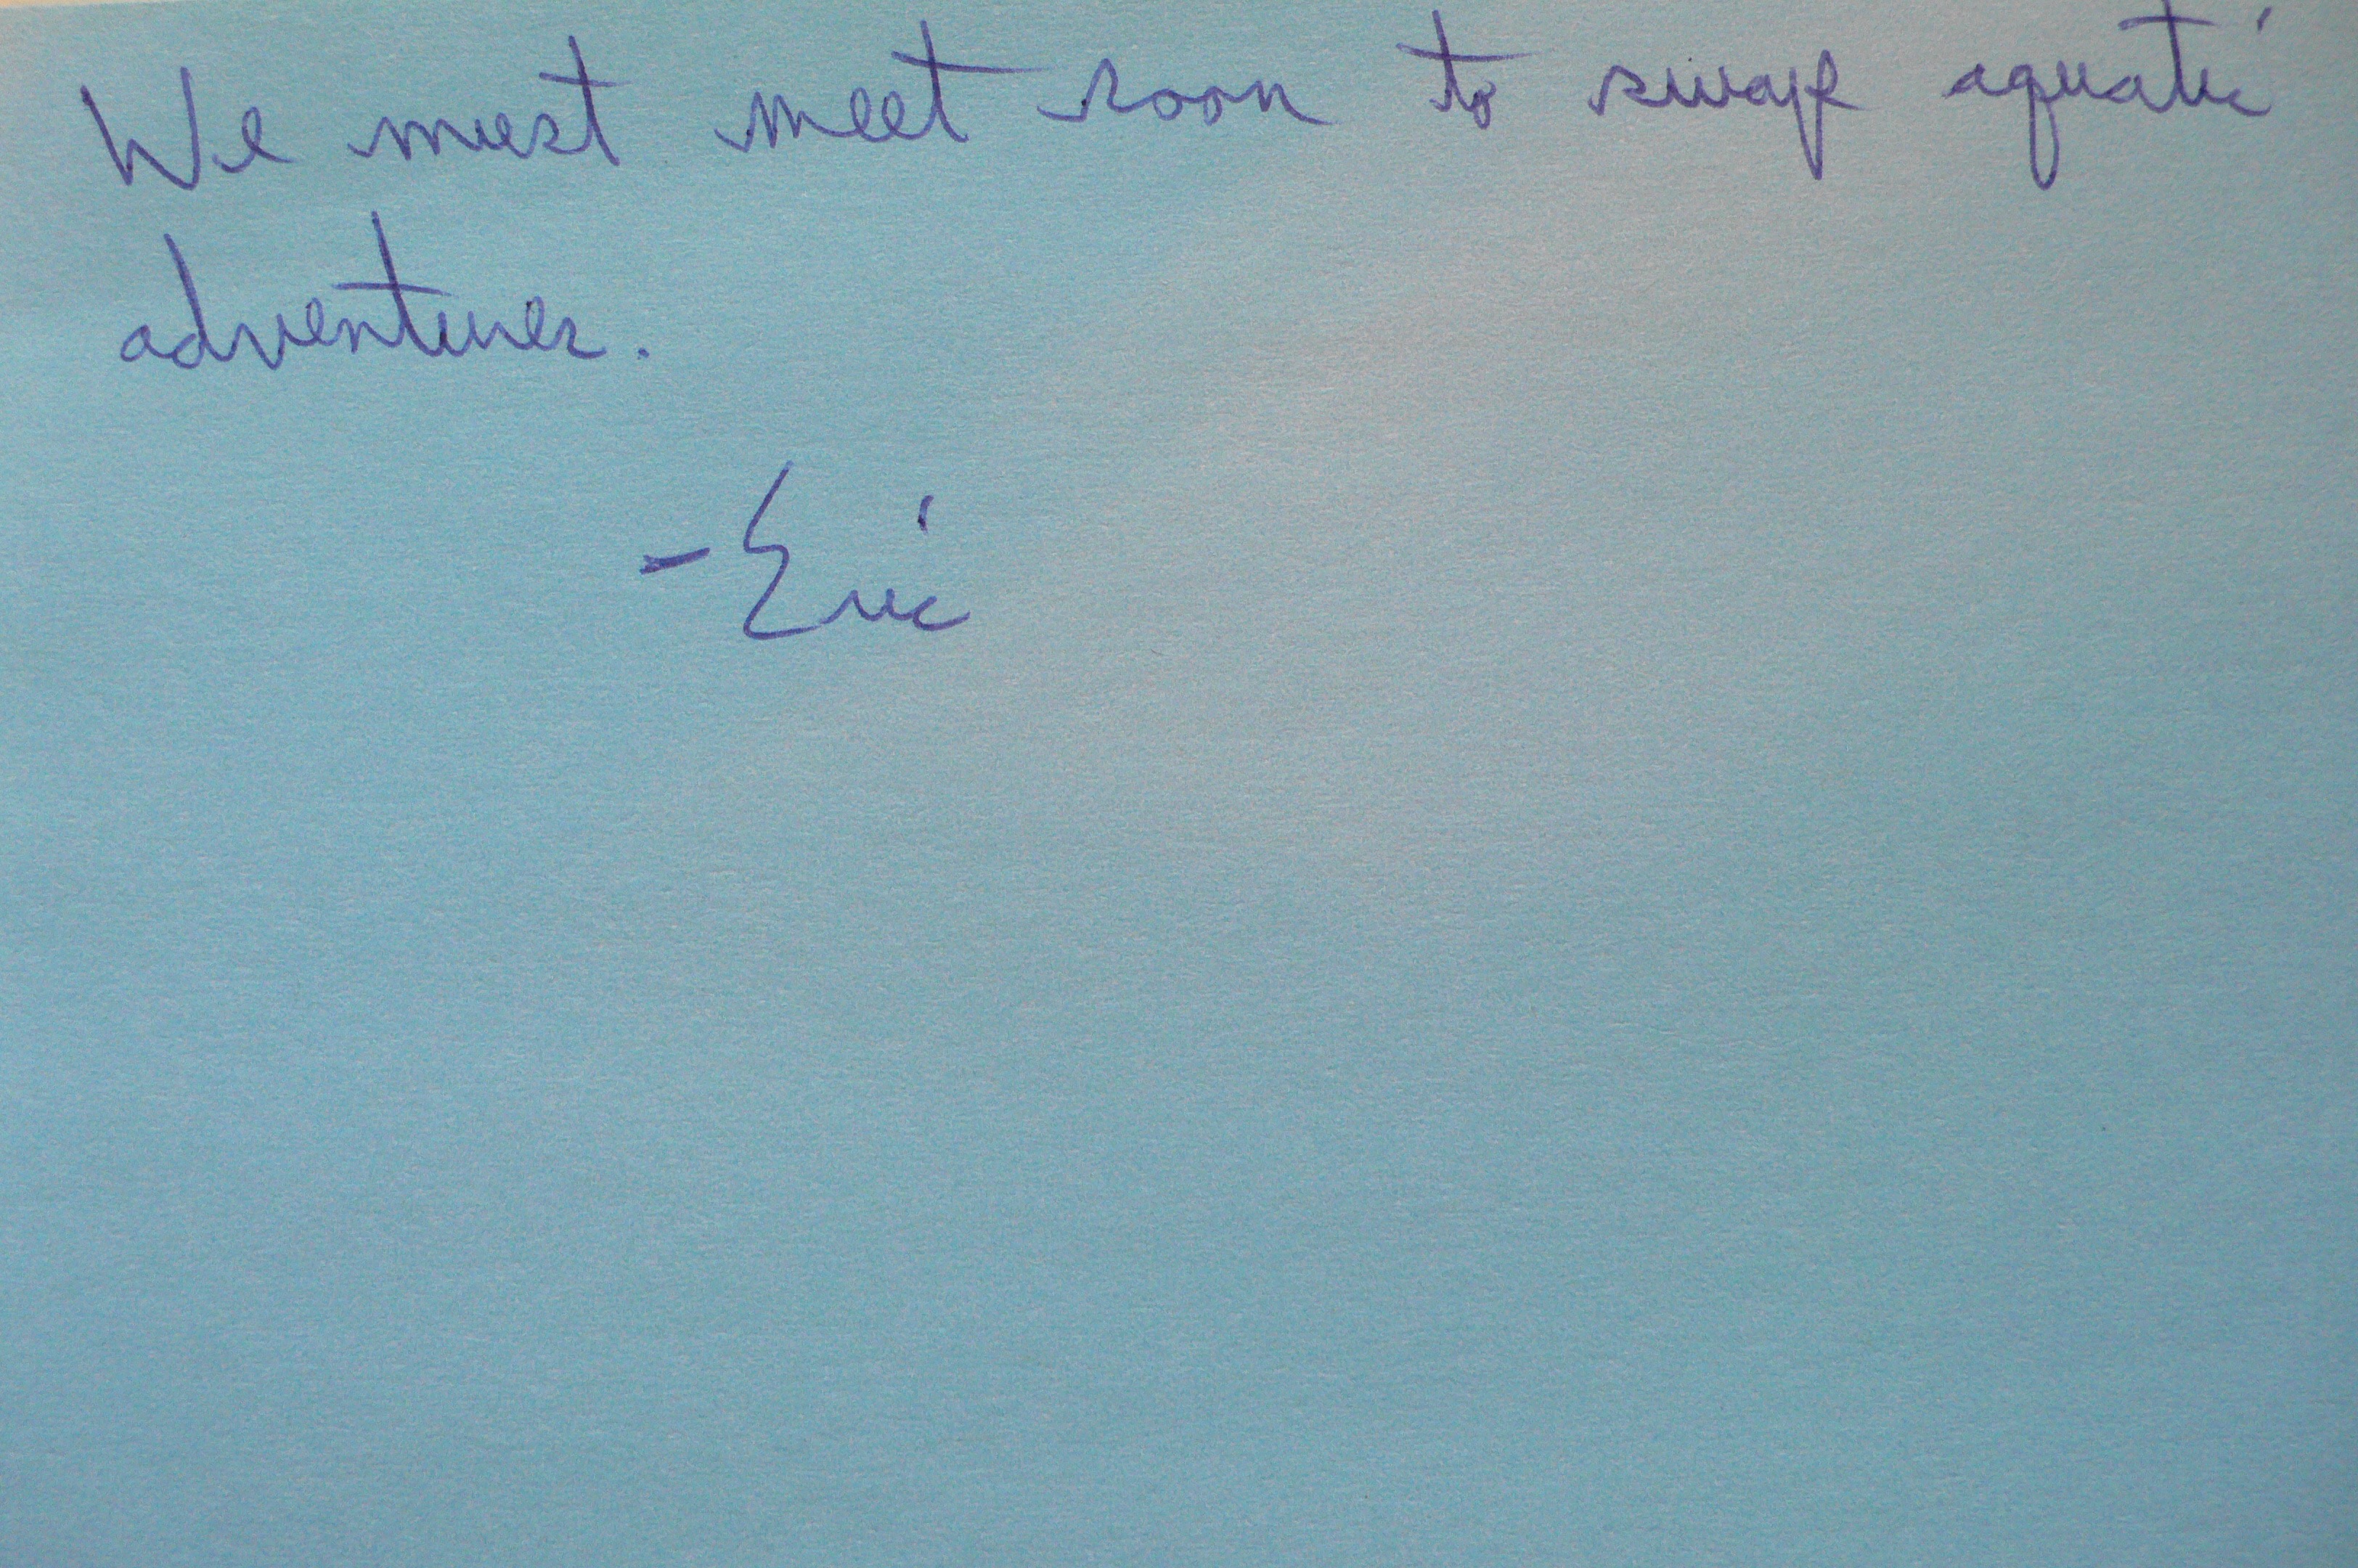 We must meet soon to swap aquatic
adventures.
-Eric